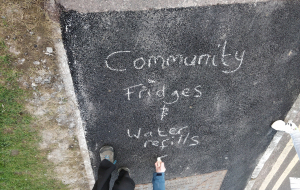 Community
Fridges
&
Water
refills